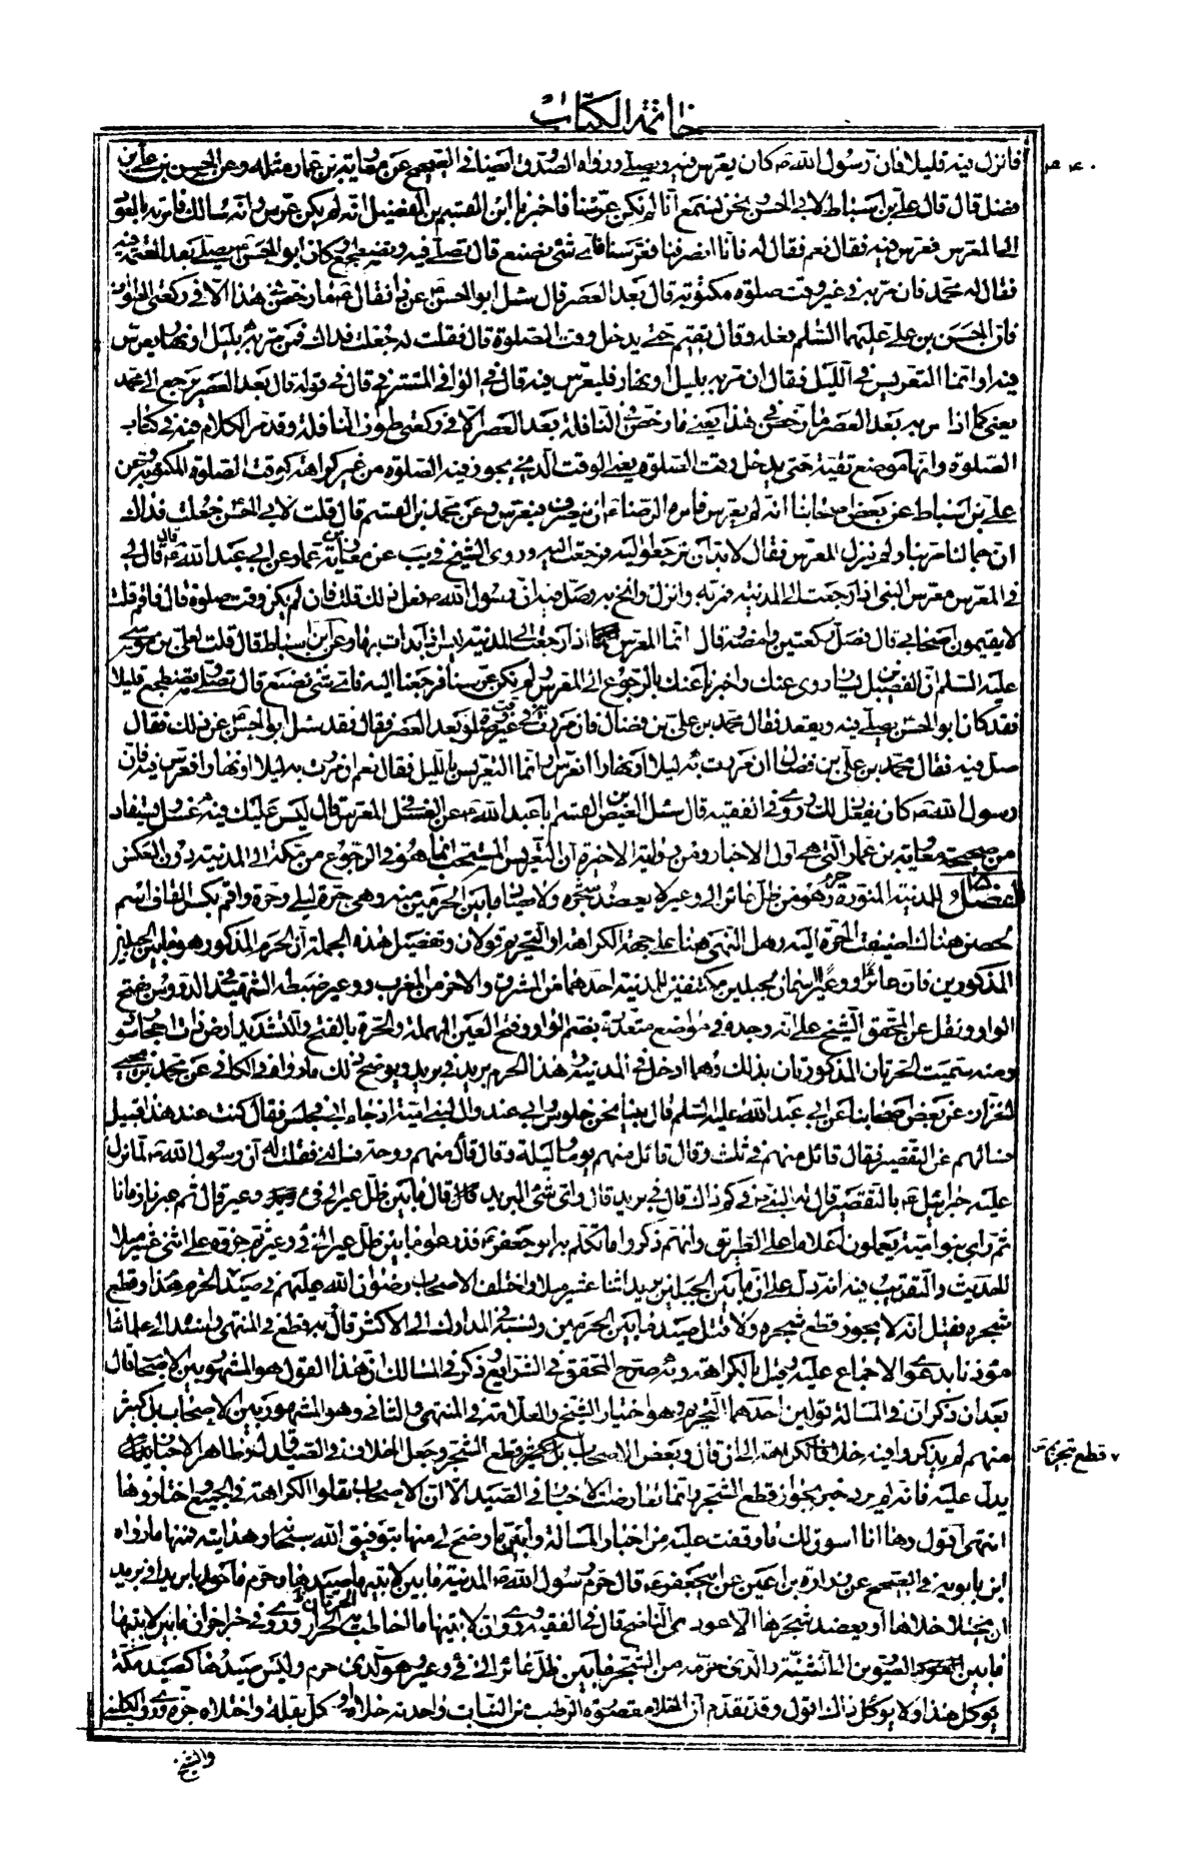 خاتمة الكتاب
فانزل فيه قليلا فان رسول الله ص كان يعرس فيه ويصلي ورواه الصدوق ايضا في الصحيح عن معاوية بن عمار مثله وعن الحسن بن علي بن
فضل قال قال علي بن اسباط لابي الحسن ونحن نسمع انا لم نكن عرسنا فاخبرنا ابن القسم بن الفضيل انه لم يكن عرس وانه سالك فامرته بالعود
الى المعرس فعرس فيه فقال نعم فقال له فانا انصرفنا فعرسنا فاي شئ نصنع قال تصلي فيه وتضطجع وكان ابو الحسن يصلي بعد العتمة فيه
فقال له محمد فان مر به في غير وقت صلوة مكتوبة قال بعد العصر قال سئل ابو الحسن عن ذا فقال ما رخص في هذا الا في ركعتي الطواف
فان الحسن بن علي عليهما السلم فعله وقال يقيم حتى يدخل وقت الصلوة قال فقلت له جعلت فداك فمن مر به بليل او نهار يعرس
فيه او انما التعريس في الليل فقال ان مر به بليل او نهار فليعرس فيه قال في الوافي المستتر في قال في قوله قال بعد العصر يرجع الى محمد
يعني كما اذا مر به بعد العصر ما رخص في هذا يعني ما رخص في النافلة بعد العصر الا في ركعتي طواف النافلة وقد مر الكلام فيه في كتاب
الصلوة وانها موضع تقية حتى يدخل وقت الصلوة يعني الوقت الذي يجوز فيه الصلوة من غير كراهة كوقت الصلوة المكتوبة وعن
علي بن اسباط عن بعض اصحابنا انه لم يعرس فامره الرضا ع ان ينصرف فيعرس وعن محمد بن القسم قال قلت لابي الحسن جعلت فداك
ان جمالنا مر بنا ولم ينزل المعرس فقال لا بد ان ترجعوا اليه فرجعت اليه وروى الشيخ في يب عن معاوية بن عمار عن ابي عبد الله ع قال قال لي
في المعرس معرس النبي اذا رجعت الى المدينة فمر به وانزل وانخ به وصل فيه ان رسول الله ص فعل ذلك قلت فان لم يكن وقت صلوة قال فاقم قلت
لا يقيمون اصحابي قال فصل ركعتين وامضه قال انما المعرس اذا رجعت الى المدينة ليس اذا بدات بها وعن ابن اسباط قال قلت لعلي بن موسى
عليه السلم ان الفضيل بن يسار روى عنك واخبرنا عنك بالرجوع الى المعرس ولم نكن عرسنا فرجعنا اليه فاي شئ نصنع قال تصلي وتضطجع قليلا
فقد كان ابو الحسن يصلي فيه ويقعد فقال محمد بن علي بن فضال فان مررت في غير وقت صلوة بعد العصر فقال قد سئل ابو الحسن عن ذلك فقال
صل فيه فقال محمد بن علي بن فضال ان مررت به ليلا او نهارا انعرس وانما التعريس بالليل فقال نعم ان مررت به ليلا او نهارا فعرس فيه فان
رسول الله ص كان يفعل ذلك وروى في الفقيه قال سئل العيص بن القسم ابا عبد الله ع عن الغسل في المعرس قال ليس عليك فيه غسل ويستفاد
من صحيحة معاوية بن عمار التي هي اول الاخبار ومن روايته الاخيرة ان التعريس المستحب انما هو في الرجوع من مكة الى المدينة دون العكس
فصل وللمدينة المنورة حرم وهو من ظل عائر الى وعير لا يعضد شجره ولا صيد ما بين الحرمين منه وهي حرة ليلى وحرة واقم بكسر القاف اسم
حصن هناك اضيفت الحرة اليه وهل النهي هنا على جهة الكراهة او التحريم قولان وتفصيل هذه الجملة ان الحرم المذكور هو ما بين الجبلين
المذكورين فان عائرا ووعير اسمان لجبلين مكتنفين للمدينة احدهما من المشرق والاخر من المغرب ووعير ضبطه الشهيد في الدروس بفتح
الواو ونقل عن المحقق الشيخ علي انه وجده في مواضع متعددة بضم الواو وفتح العين المهملة والحرة بالفتح والتشديد ارض ذات احجار سود
ومنه سميت الحرتان المذكورتان بذلك وهما ادخل في المدينة وهذا الحرم بريد في بريد ويوضح ذلك ما رواه في الكافي عن محمد بن يحيى
الخزاز عن بعض اصحابنا عن ابي عبد الله عليه السلم قال بينا نحن جلوس وابي عند وال لبني امية اذ جاء ابي فجلس فقال كنت عند هذا قبيل
فسائلهم عن التقصير فقال قائل منهم في ثلث وقال قائل منهم يوما وليلة وقال قائل منهم روحة فسالني فقلت له ان رسول الله ص لما نزل
عليه جبرائيل ع بالتقصير قال له النبي ص في كم ذاك قال في بريد قال واي شئ البريد قال ما بين ظل عير الى فئ وعير قال ثم عبرنا زمانا
ثم راى بنو امية يعملون اعلاما على الطريق وانهم ذكروا ما تكلم به ابو جعفر ع فذرعوا ما بين ظل عير الى فئ وعير ثم جزوه على اثنى عشر ميلا
الحديث والتقريب فيه انه دل على ان ما بين الجبلين بريد اثنا عشر ميلا واختلف الاصحاب رضوان الله عليهم في صيد الحرم هذا وقطع
شجره فقيل انه لا يجوز قطع شجره ولا قتل صيد ما بين الحرمين ونسبه في المدارك الى الاكثر قال وبه قطع في المنتهى واسنده الى علمائنا
مؤذنا بدعوى الاجماع عليه وقيل بالكراهة وبه صرح المحقق في الشرايع وذكر في المسالك ان هذا القول هو المشهور بين الاصحاب قال
بعد ان ذكر ان في المسالة قولين احدهما التحريم وهو اختيار الشيخ والعلامة في المنتهى والثاني وهو المشهور بين الاصحاب بل كثير
منهم لم يذكروا فيه خلافا الكراهة الى ان قال وبعض الاصحاب قطع الشجر وجعل الخلاف في الصيد وظاهر الاخبار
يدل عليه فانه لم يرد خبر بجواز قطع الشجر وانما تعارضت الاخبار في الصيد الا ان الاصحاب نقلوا الكراهة في الجميع واختاروها
انتهى اقول وها انا اسوق لك ما وقفت عليه من اخبار المسالة وابين ما وضح لي منها بتوفيق الله سبحانه وهدايته فمنها ما رواه
ابن بابويه في الصحيح عن زرارة بن اعين عن ابي جعفر ع قال حرم رسول الله ص المدينة ما بين لابتيها صيدها وحرم ما حولها بريدا في بريد
ان يختلا خلاها او يعضد شجرها الا عودي الناضح قال في الفقيه وروى ان لابتيها ما احاطت به الحرار وروى في خبر اخر ان ما بين لابتيها
ما بين الصورين الى الثنية والذي حرمه من الشجر ما بين ظل عائر الى فئ وعير وهو الذي حرم وليس صيدها كصيد مكة
يؤكل هذا ولا يؤكل ذاك اقول وقد تقدم ان الخلاء مقصورة الرطب من النبات واحدته خلاة او كل بقلة واختلاه جزه وروى الكليني
والشيخ